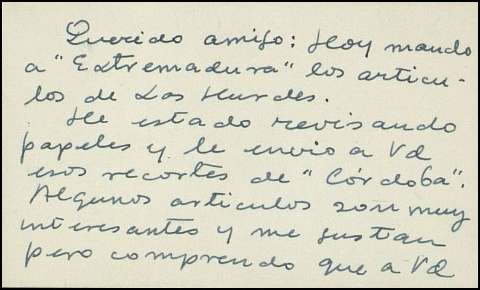 Querido amigo: Hoy mando
a "Extremadura" los articu-
los de Las Hurdes.
He estado revisando
papeles y le envio a Vd
esos recortes de "Córdoba".
Algunos articulos son muy
interesantes y me gustan
pero comprendo que a Vd